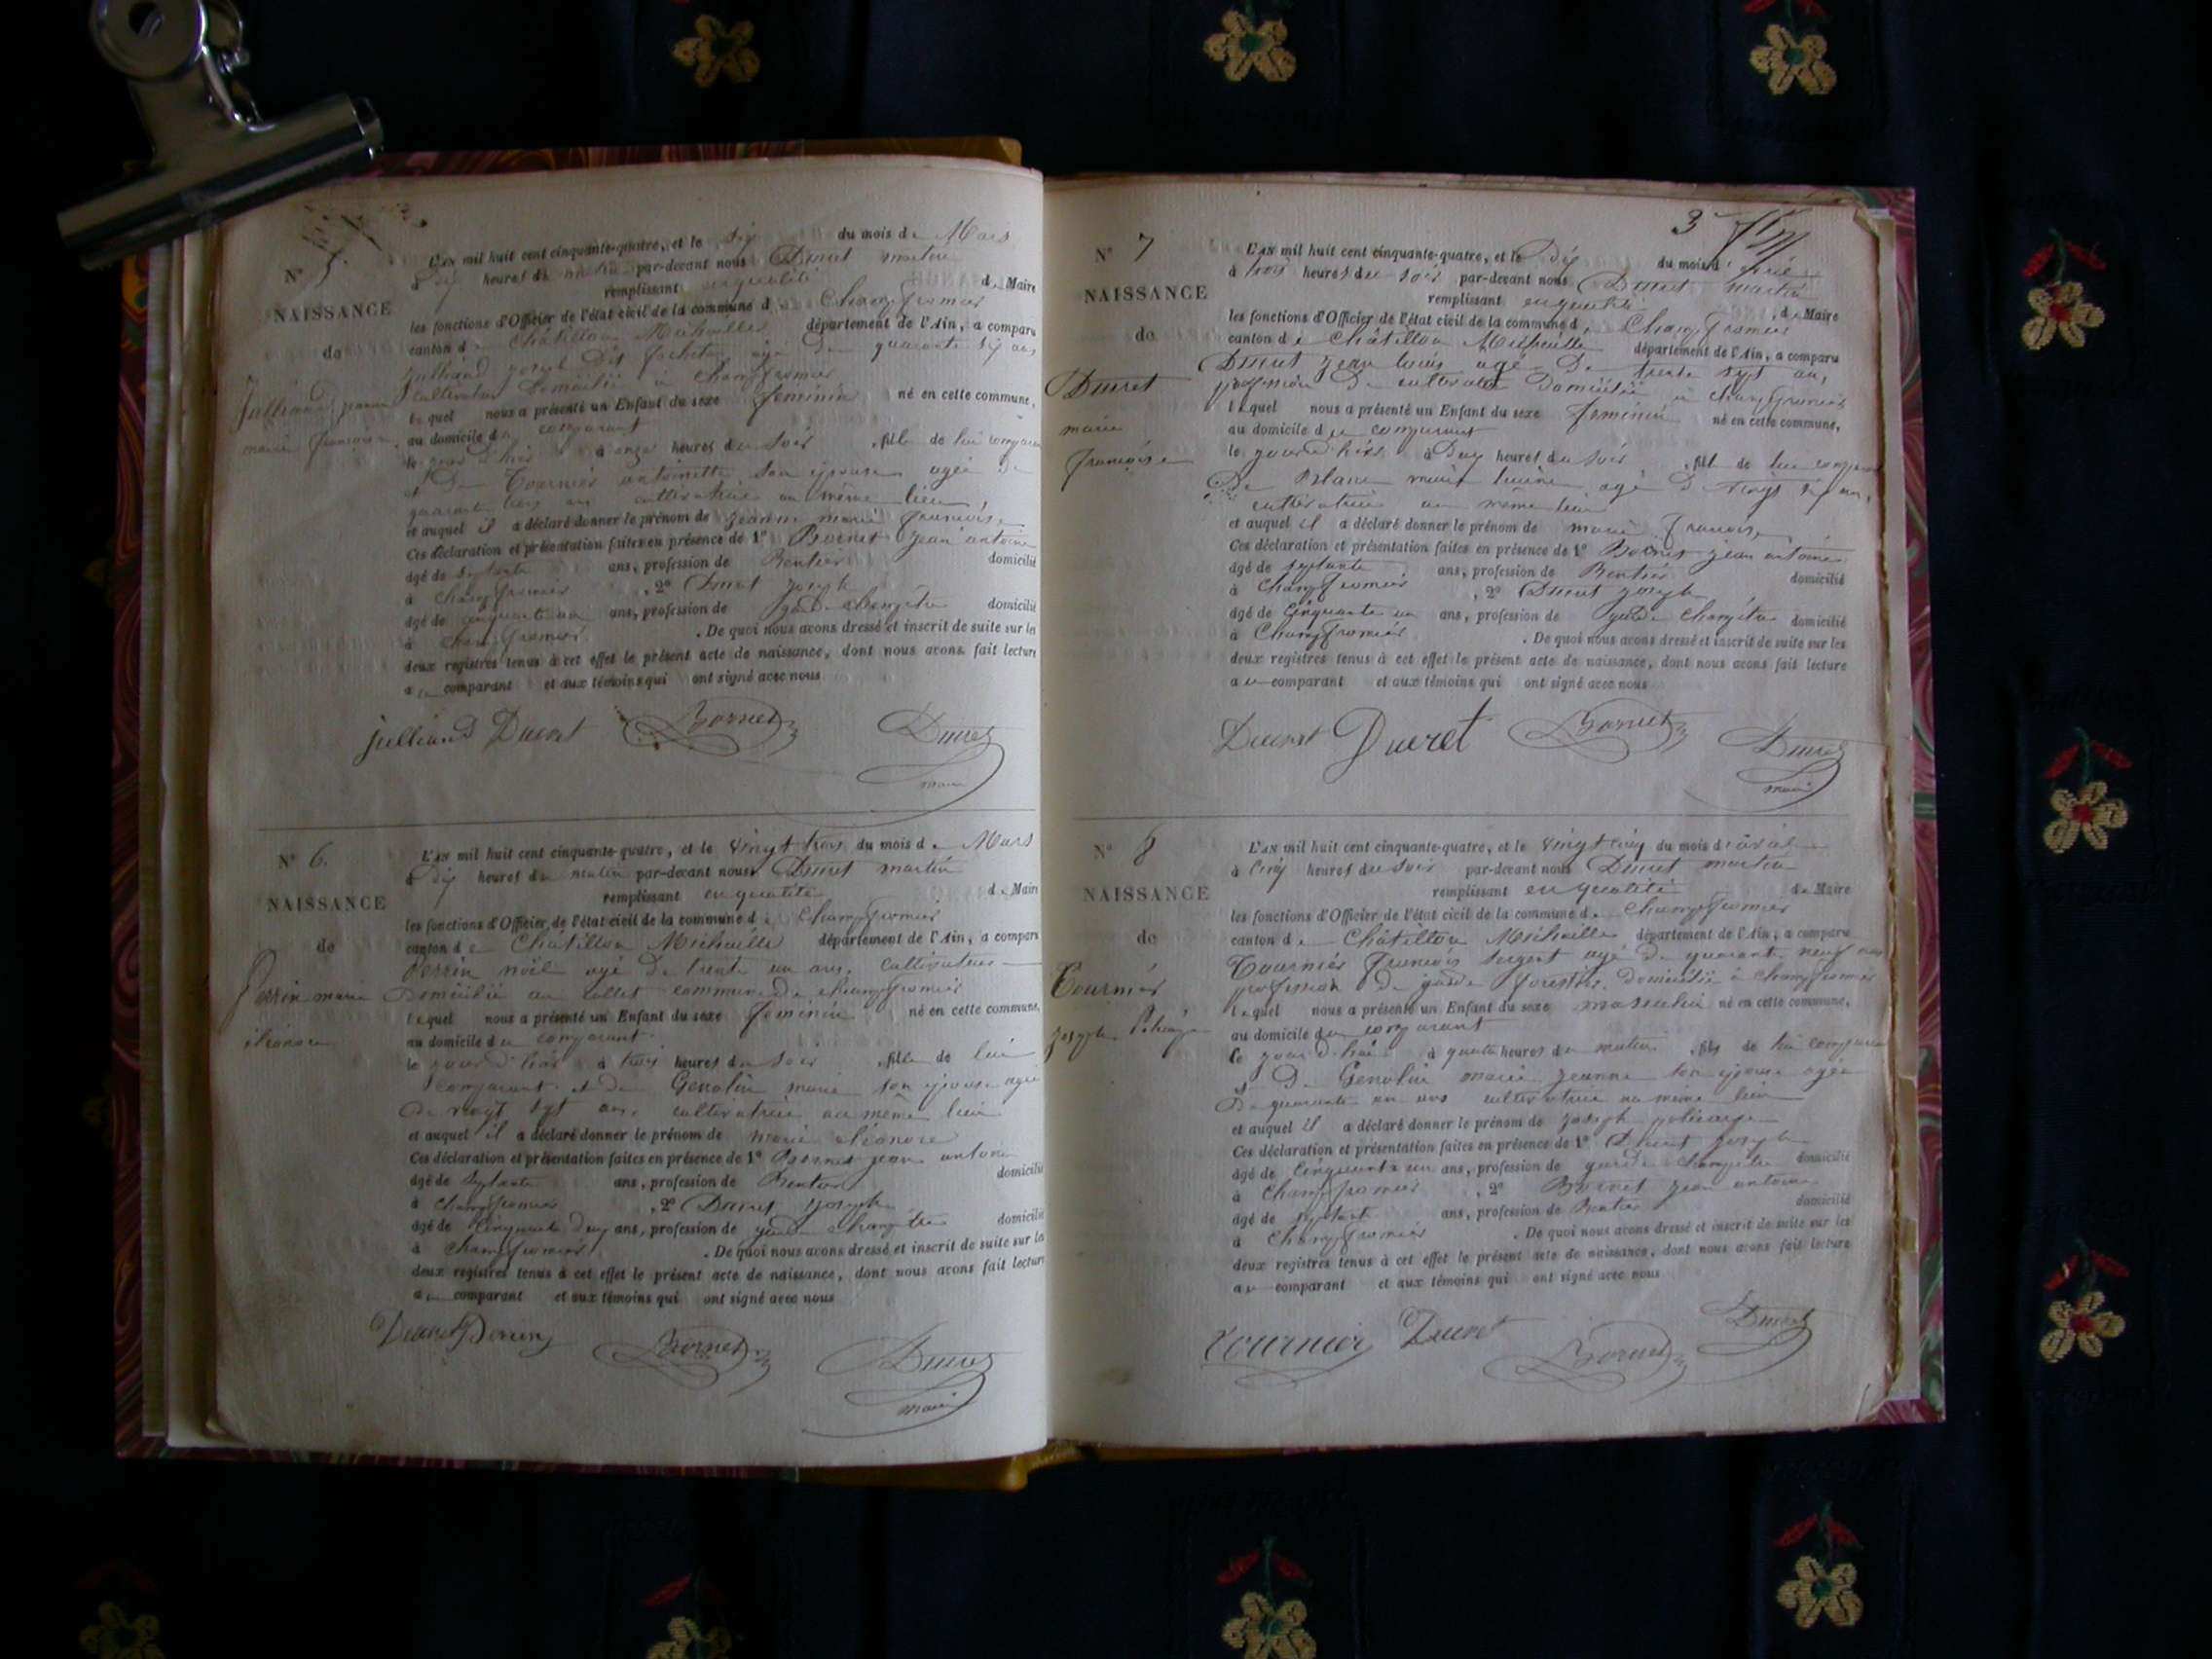 N° 5.
NAISSANCE
de
Julliand jeanne
marie françoise
L'AN mil huit cent cinquante-quatre, et le dix du mois de Mars
à dix heures du matin par-devant nous Ducret martin
remplissant en qualité de Maire
les fonctions d'Officier de l'état civil de la commune de Champfromier
canton de Châtillon Michaille département de l'Ain, a comparu
Julliand joseph dit agé de quarante six ans
cultivateur domicilié à Champfromier
lequel nous a présenté un Enfant du sexe féminin né en cette commune,
au domicile du comparant
le jour d'hier à onze heures du soir, fille de lui comparant
et de Tournier antoinette son épouse agée de
quarante trois ans cultivatrice au même lieu
et auquel il a déclaré donner le prénom de jeanne marie françoise
Ces déclaration et présentation faites en présence de 1° Bornet jean antoine
âgé de septante ans, profession de Rentier domicilié
à Champfromier, 2° Ducret joseph
âgé de cinquante un ans, profession de garde champêtre domicilié
à Champfromier. De quoi nous avons dressé et inscrit de suite sur les
deux registres tenus à cet effet le présent acte de naissance, dont nous avons fait lecture
au comparant et aux témoins qui ont signé avec nous
julliand Ducret Bornet Ducret
maire
N° 6.
NAISSANCE
de
Perrin marie
éléonore
L'AN mil huit cent cinquante-quatre, et le vingt trois du mois de Mars
à dix heures du matin par-devant nous Ducret martin
remplissant en qualité de Maire
les fonctions d'Officier de l'état civil de la commune de Champfromier
canton de Châtillon Michaille département de l'Ain, a comparu
Perrin noël agé de trente un ans, cultivateur
domicilié au Collet commune de champfromier
lequel nous a présenté un Enfant du sexe féminin né en cette commune,
au domicile du comparant
le jour d'hier à trois heures du soir, fille de lui
comparant et de Genolin marie son épouse agée
de vingt sept ans, cultivatrice au même lieu
et auquel il a déclaré donner le prénom de marie éléonore
Ces déclaration et présentation faites en présence de 1° Bornet jean antoine
âgé de septante ans, profession de Rentier domicilié
à Champfromier, 2° Ducret joseph
âgé de cinquante deux ans, profession de garde champêtre domicilié
à Champfromier. De quoi nous avons dressé et inscrit de suite sur les
deux registres tenus à cet effet le présent acte de naissance, dont nous avons fait lecture
au comparant et aux témoins qui ont signé avec nous
Ducret Perrin Bornet Ducret
maire
3
N° 7
NAISSANCE
de
Ducret
marie
françoise
L'AN mil huit cent cinquante-quatre, et le dix du mois d'avril
à trois heures du soir par-devant nous Ducret martin
remplissant en qualité de Maire
les fonctions d'Officier de l'état civil de la commune de Champfromier
canton de Châtillon Michaille département de l'Ain, a comparu
Ducret jean louis agé de trente sept ans,
profession de cultivateur domicilié à champfromier
lequel nous a présenté un Enfant du sexe féminin né en cette commune,
au domicile du comparant
le jour d'hier à deux heures du soir, fille de lui comparant
de Blanc marie agé de vingt six ans,
cultivatrice au même lieu
et auquel il a déclaré donner le prénom de marie françoise
Ces déclaration et présentation faites en présence de 1° Bornet jean antoine
âgé de septante ans, profession de Rentier domicilié
à Champfromier, 2° Ducret joseph
âgé de cinquante un ans, profession de garde champêtre domicilié
à Champfromier. De quoi nous avons dressé et inscrit de suite sur les
deux registres tenus à cet effet le présent acte de naissance, dont nous avons fait lecture
au comparant et aux témoins qui ont signé avec nous
Ducret Ducret Bornet Ducret
maire
N° 8
NAISSANCE
de
Tournier
joseph
L'AN mil huit cent cinquante-quatre, et le vingt cinq du mois d'avril
à cinq heures du soir par-devant nous Ducret martin
remplissant en qualité de Maire
les fonctions d'Officier de l'état civil de la commune de Champfromier
canton de Châtillon Michaille département de l'Ain, a comparu
Tournier françois sergent agé de quarante neuf ans
profession de garde forestier domicilié à champfromier
lequel nous a présenté un Enfant du sexe masculin né en cette commune,
au domicile du comparant
le jour d'hier à quatre heures du matin, fils de lui comparant
& de Genolin marie jeanne son épouse agée
de quarante un ans cultivatrice au même lieu
et auquel il a déclaré donner le prénom de joseph policarpe
Ces déclaration et présentation faites en présence de 1° Ducret joseph
âgé de cinquante un ans, profession de garde champêtre domicilié
à Champfromier, 2° Bornet jean antoine
âgé de septante ans, profession de Rentier domicilié
à Champfromier. De quoi nous avons dressé et inscrit de suite sur les
deux registres tenus à cet effet le présent acte de naissance, dont nous avons fait lecture
au comparant et aux témoins qui ont signé avec nous
tournier Ducret Bornet Ducret